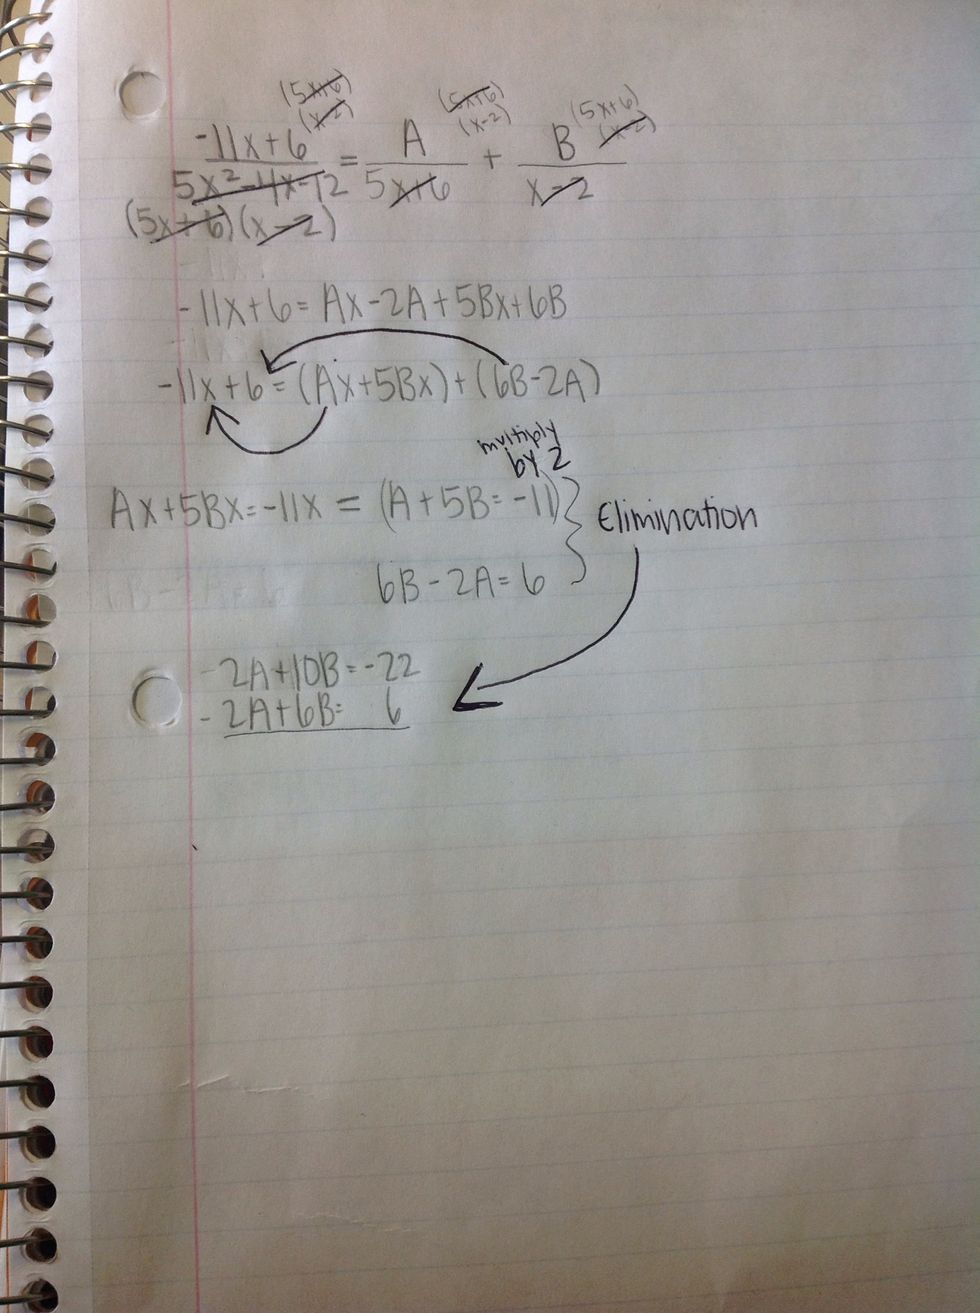 (5x+6) (5x+6) (5x+6)
(x-2) (x-2) (x-2)
-11x+6 = A + B
5x²-4x-12 5x+6 x-2
(5x+6)(x-2)
-11x+6=Ax-2A+5Bx+6B
-11x+6=(Ax+5Bx)+(6B-2A)
multiply
by 2
Ax+5Bx=-11x = (A+5B=-11)
Elimination
6B-2A=6
-2A+10B=-22
-2A+6B= 6